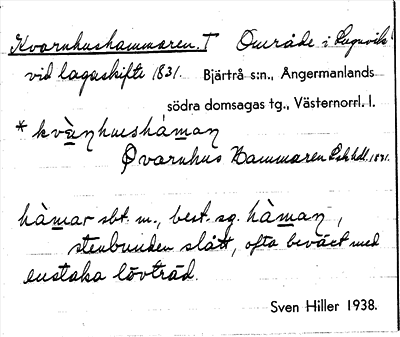 Kvarnhushammaren. T Område i Lugnvik
vid lagaskifte 1831. Bjärtrå s:n., Ångermanlands
södra domsagas tg., Västernorrl. l.
* kvä̀ṇhushàman
Qvarnhus Hammaren Lskhdl. 1831.
hàmar sbt. m., best. sg. hàman,
stenbunden slått, ofta beväxt med
enstaka lövträd.
Sven Hiller 1938.